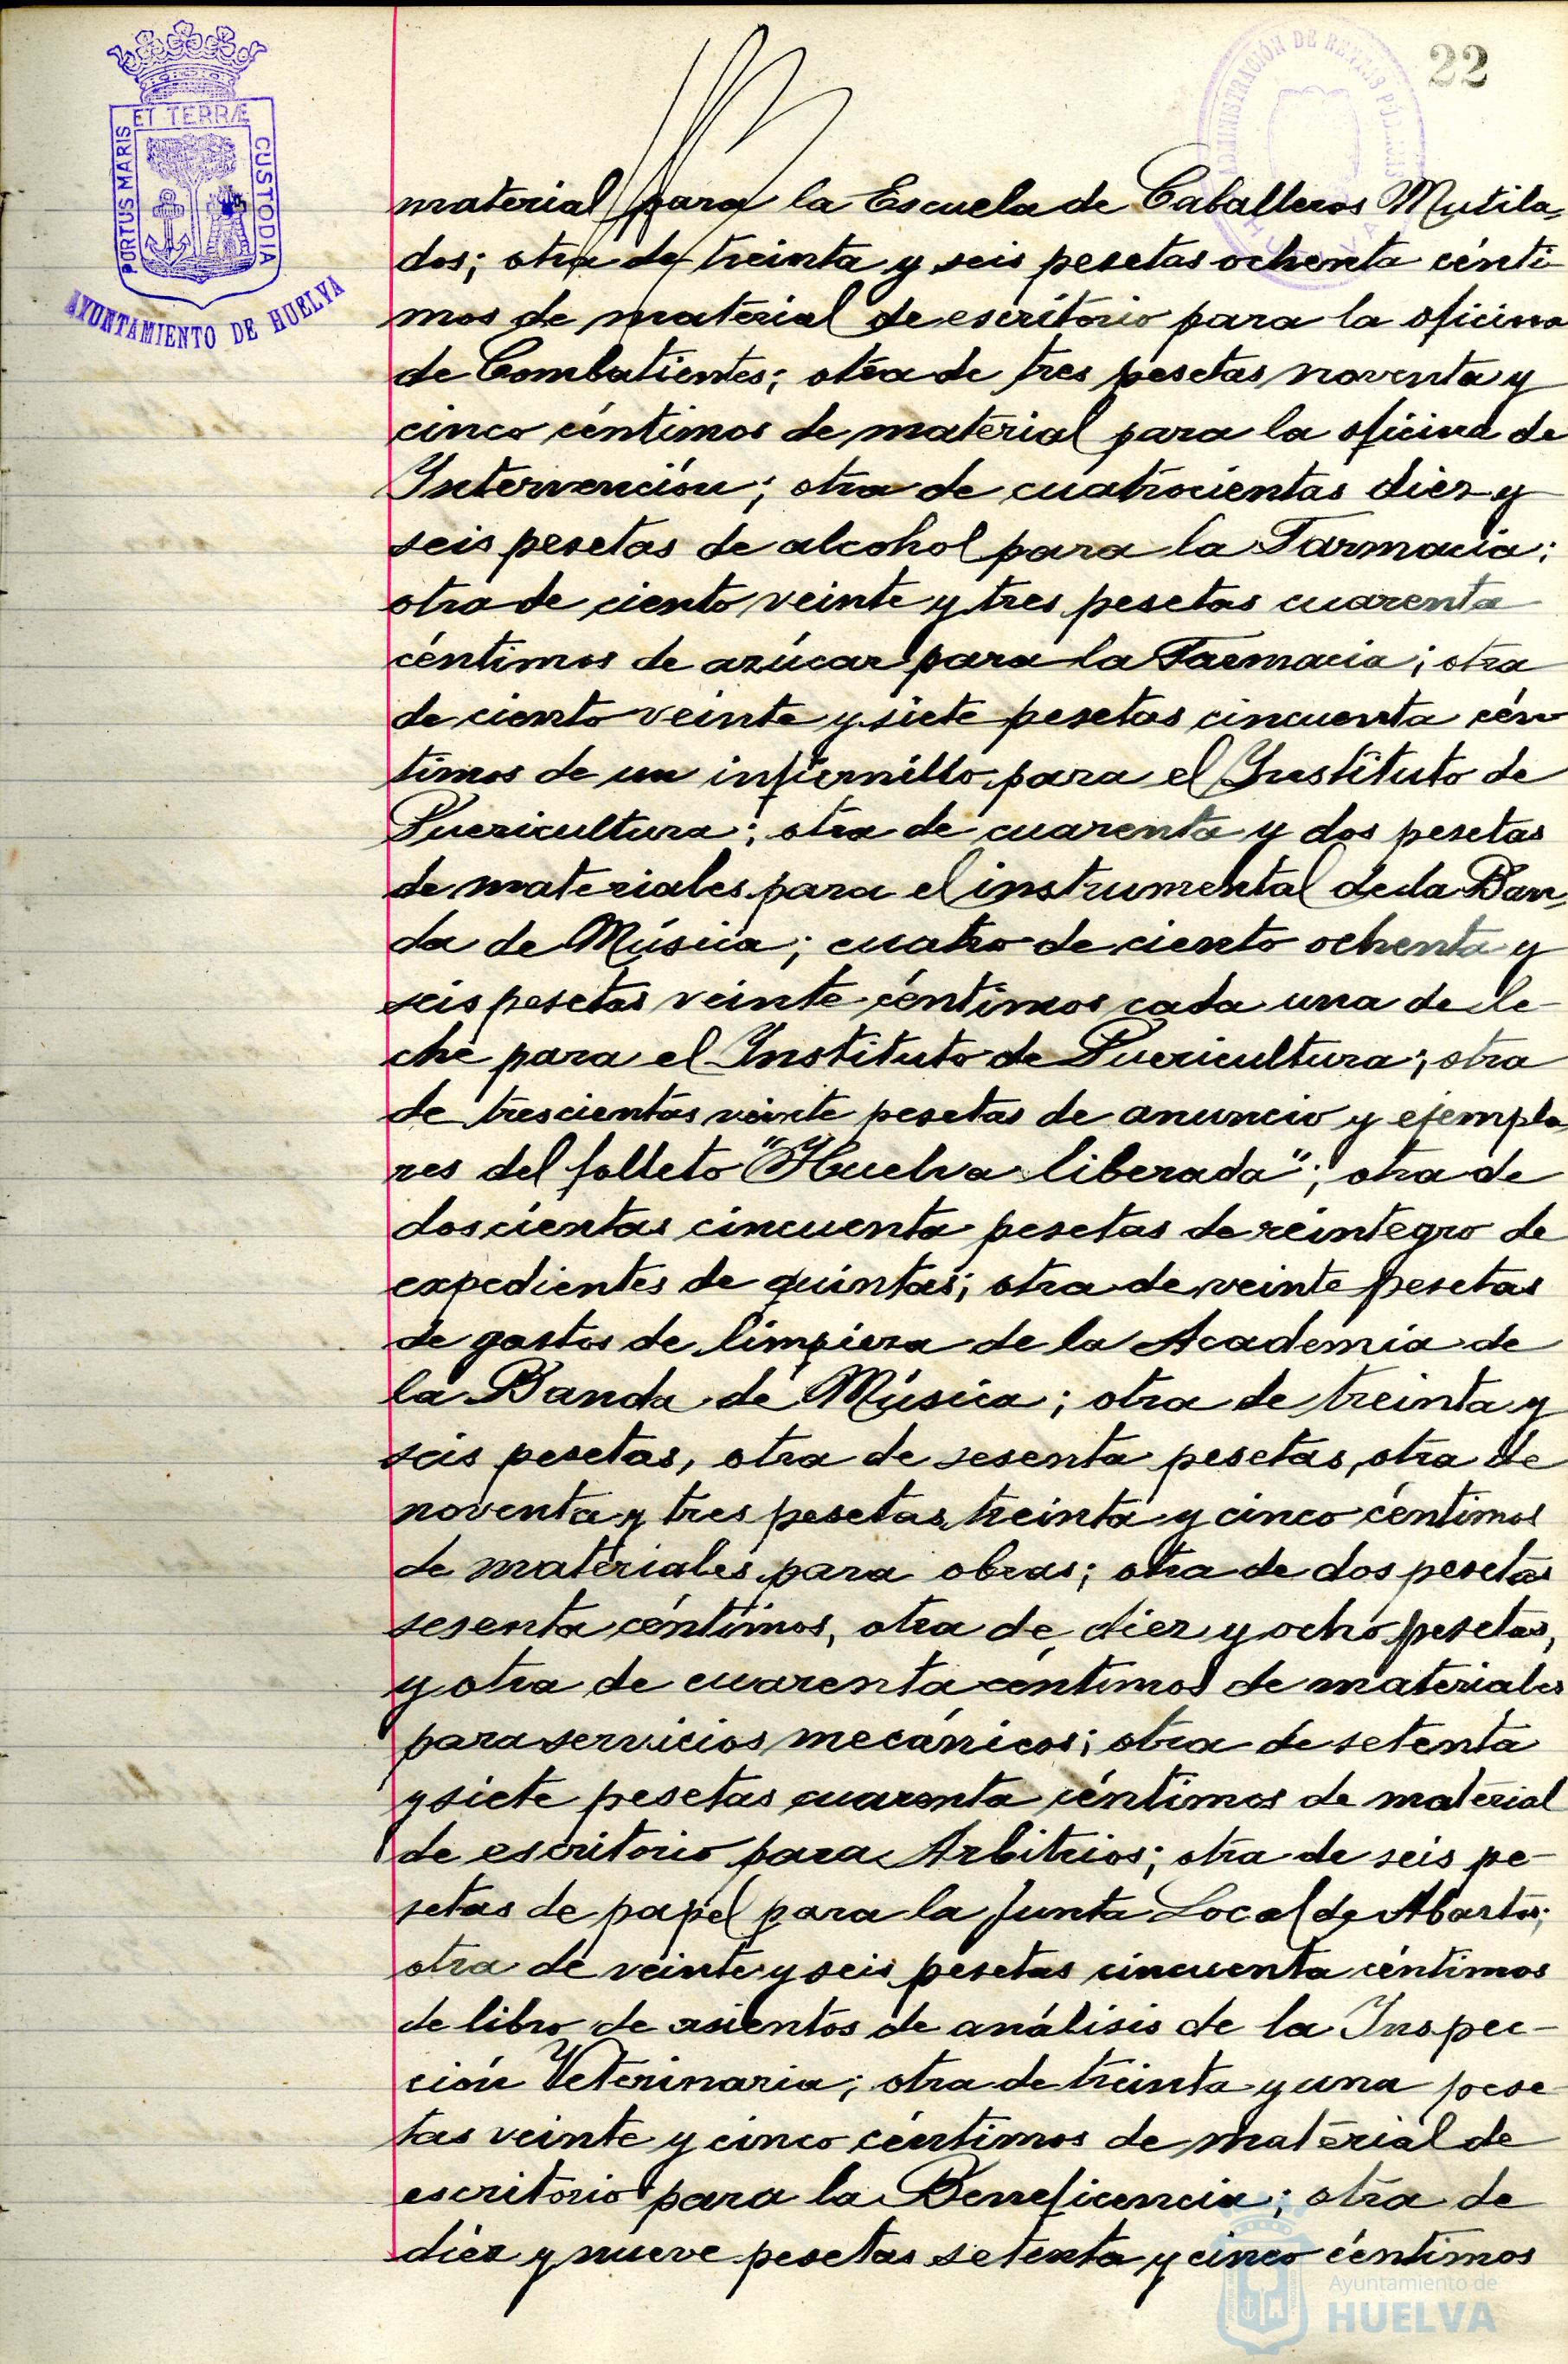 22
ET TERRÆ
PORTUS MARIS
CUSTODIA
AYUNTAMIENTO DE HUELVA
ADMINISTRACIÓN DE RENTAS PÚBLICAS
HUELVA
material para la Escuela de Caballeros Mutila-
dos; otra de treinta y seis pesetas ochenta cénti
mos de material de escritorio para la oficina
de Combatientes; otra de tres pesetas noventa y
cinco céntimos de material para la oficina de
Intervención; otra de cuatrocientas diez y
seis pesetas de alcohol para la Farmacia;
otra de ciento veinte y tres pesetas cuarenta
céntimos de azúcar para la Farmacia; otra
de ciento veinte y siete pesetas cincuenta cén
timos de un infiernillo para el Instituto de
Puericultura; otra de cuarenta y dos pesetas
de materiales para el instrumental de la Ban-
da de Música; cuatro de ciento ochenta y
seis pesetas veinte céntimos cada una de le-
che para el Instituto de Puericultura; otra
de trescientas veinte pesetas de anuncio y ejempla
res del folleto "Huelva liberada"; otra de
doscientas cincuenta pesetas de reintegro de
expedientes de quintas; otra de veinte pesetas
de gastos de limpieza de la Academia de
la Banda de Música; otra de treinta y
seis pesetas, otra de sesenta pesetas, otra de
noventa y tres pesetas treinta y cinco céntimos
de materiales para obras; otra de dos pesetas
sesenta céntimos, otra de diez y ocho pesetas,
y otra de cuarenta céntimos de materiales
para servicios mecánicos; otra de setenta
y siete pesetas cuarenta céntimos de material
de escritorio para Arbitrios; otra de seis pe-
setas de papel para la Junta Local de Abastos;
otra de veinte y seis pesetas cincuenta céntimos
de libro de asientos de análisis de la Inspec-
ción Veterinaria; otra de treinta y una pese
tas veinte y cinco céntimos de material de
escritorio para la Beneficencia; otra de
diez y nueve pesetas setenta y cinco céntimos
Ayuntamiento de
HUELVA